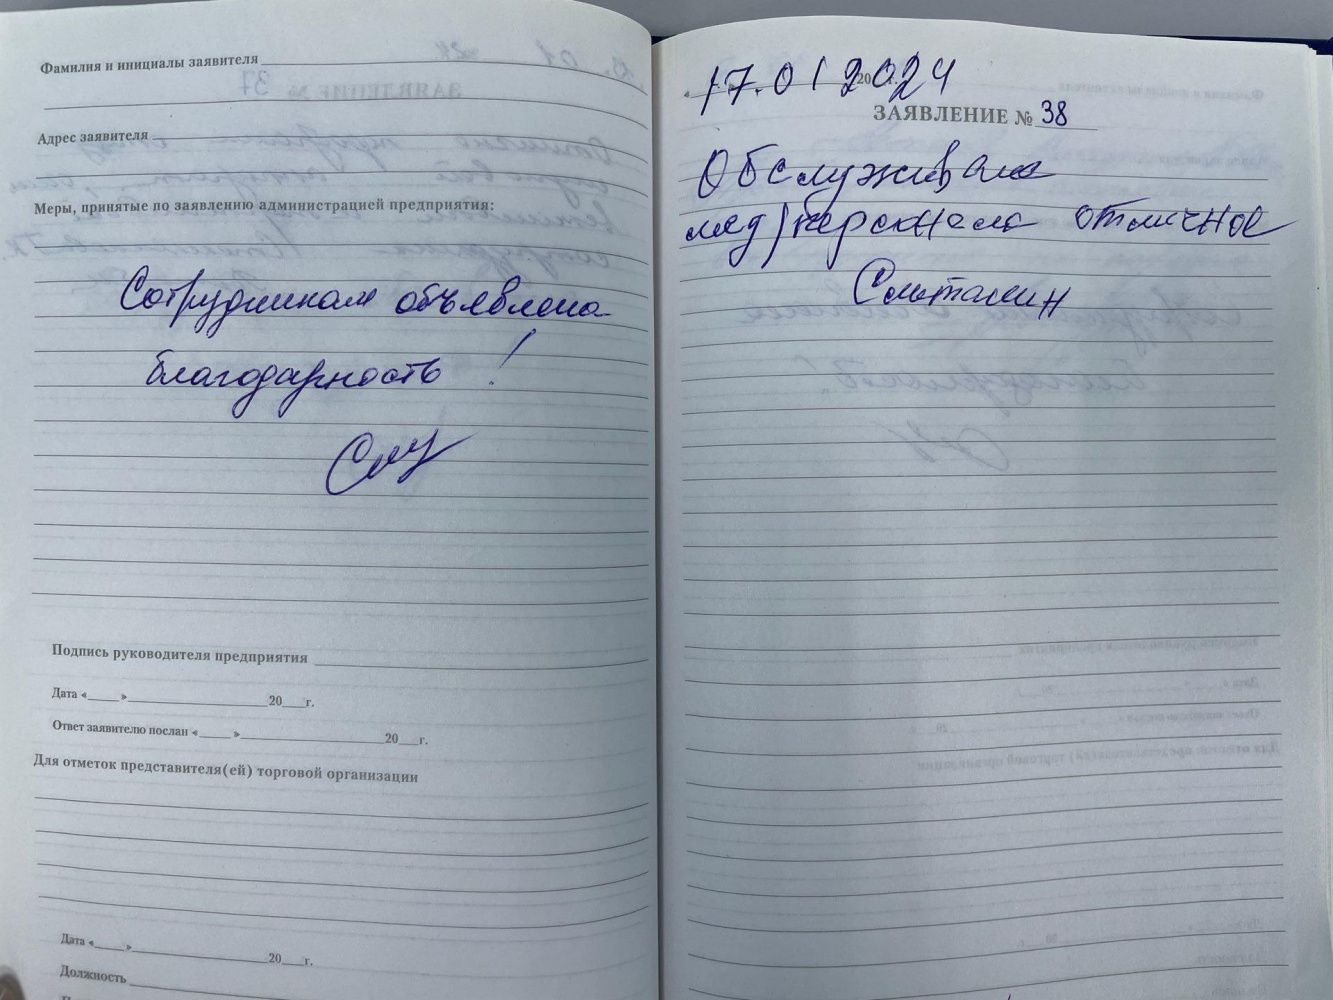 Фамилия и инициалы заявителя
Адрес заявителя
Меры, принятые по заявлению администрацией предприятия:
Сотрудникам объявлена
благодарность !
Подпись руководителя предприятия
Дата «____» ____________ 20___г.
Ответ заявителю послан «____» ____________ 20___г.
Для отметок представителя(ей) торговой организации
Дата «____» ____________ 20___г.
Должность
17.01 2024
ЗАЯВЛЕНИЕ № 38
Обслуживание
мед/персонала отличное